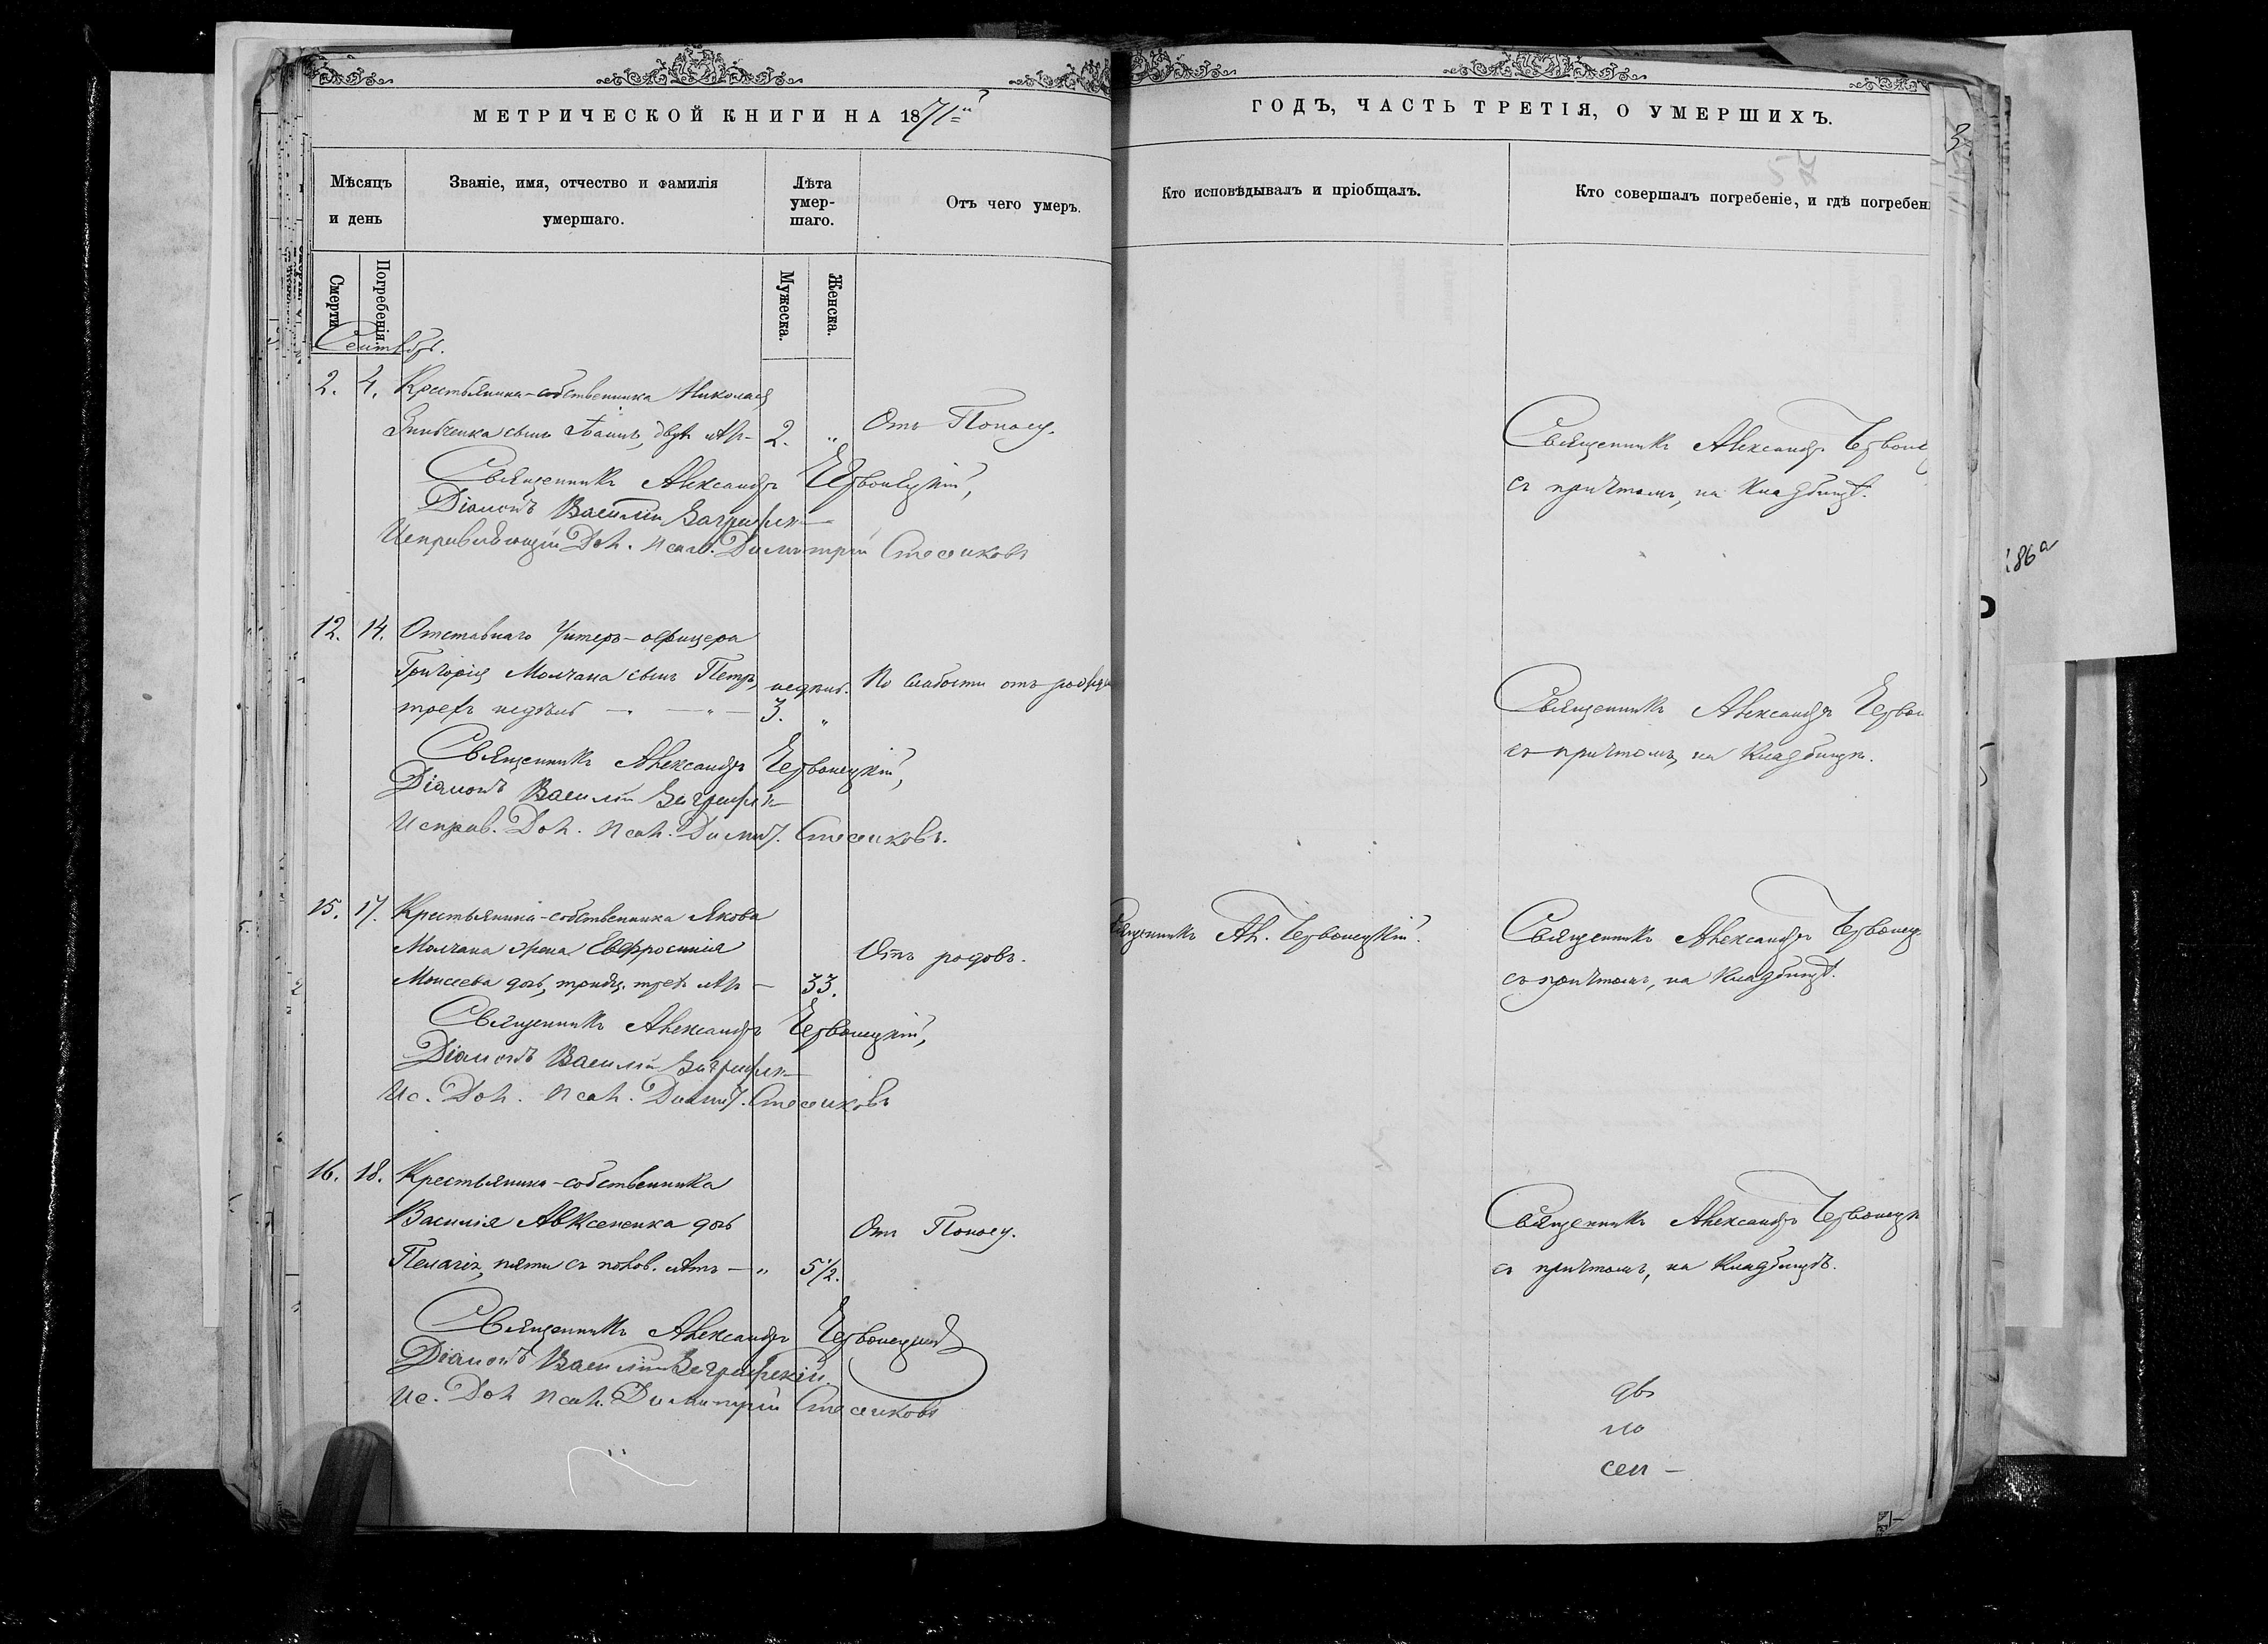 МЕТРИЧЕСКОЙ КНИГИ НА 1871й
ГОДЪ, ЧАСТЬ ТРЕТІЯ, О УМЕРШИХЪ.
Мѣсяцъ и день
Званіе, имя, отчество и фамилія умершаго.
Лѣта умер- шаго.
Отъ чего умеръ.
Кто исповѣдывалъ и пріобщалъ.
Кто совершалъ погребеніе, и гдѣ погребен
Смерти.
Погребенія.
Мужеска.
Женска.
Сентябрь.
2. 4. Крестьянина-собственника Николая
сынъ двухъ лѣт- 2. „ Отъ Поносу.
Священникъ Александръ Червонецкій,
Діаконъ Василій
Исправляющій Дол. Псал. Димитрій
Священникъ Александръ
съ причтомъ, на Кладбищѣ.
12. 14. Отставнаго Унтеръ-офицера
Григорія Молчана сынъ Петръ, недѣль. По слабости отъ
трехъ недѣль — „ — 3. „
Священникъ Александръ Червонецкій,
Діаконъ Василій
Исправ. Дол. Псал. Димит.
Священникъ Александръ
съ причтомъ, на Кладбищѣ.
15. 17. Крестьянина-собственника Якова
Молчана жена Евфросинія Отъ родовъ.
Моисеева дочь, тридц. трехъ лѣт — 33.
Священникъ Александръ Червонецкій,
Діаконъ Василій
Ис. Дол. Псал. Димит.
Ал. Червонецкій.
Священникъ Александръ
съ причтомъ, на Кладбищѣ.
16. 18. Крестьянина-собственника
Василія Авксененка дочь Отъ Поносу.
Пелагія, пяти съ полов. лѣтъ — „ 5½.
Священникъ Александръ Червонецкій
Діаконъ Василій
Ис. Дол Псал. Димитрій
Священникъ Александръ
съ причтомъ, на Кладбищѣ.
дв
по
сен —
86а